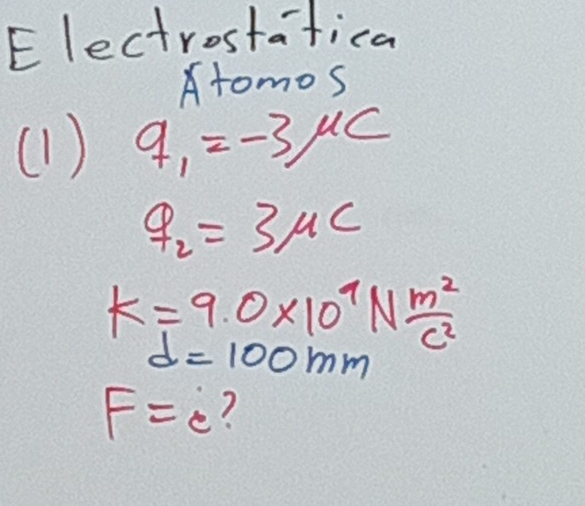 Electrostática
Átomos
(1) q₁ = -3 μC
q₂ = 3 μC
K = 9.0 × 10⁹ N m²/C²
d = 100 mm
F = ¿?